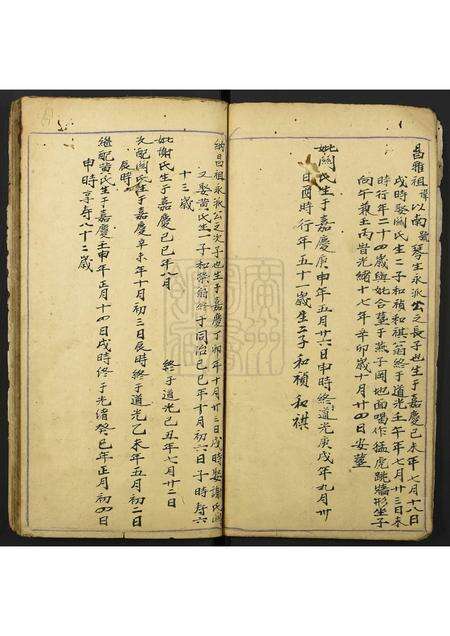 昌雅祖諱以南號琴生永派公之長子也生于嘉慶己未年七月十八日
戌時娶闕氏生二子和禎和祺翁終于道光壬午年七月廿三日未
時行年二十四歲與妣合塟于燕子岡地面喝作猛虎跳牆形坐子
向午兼壬丙皆光緒十七年辛卯歲十月廿四日安塟
妣闕氏生于嘉慶庚申年五月廿六日申時終道光庚戌年九月卅
日酉時行年五十一歲生二子和禎和祺
納昌祖永派公之次子也生于嘉慶丁卯年十月廿三日戌時娶謝氏闕
又娶黃氏生一子和榮翁終于同治己巳年十月初六日子時壽六
十三歲
妣謝氏生于嘉慶己巳年八月 終于道光己丑年七月廿二日
次配闕氏生于嘉慶辛未年十月初三日辰時終于道光乙未年五月初二日
辰時
繼配黃氏生于嘉慶壬申年正月十四日戌時終于光緒癸巳年正月初四日
申時享壽八十二歲